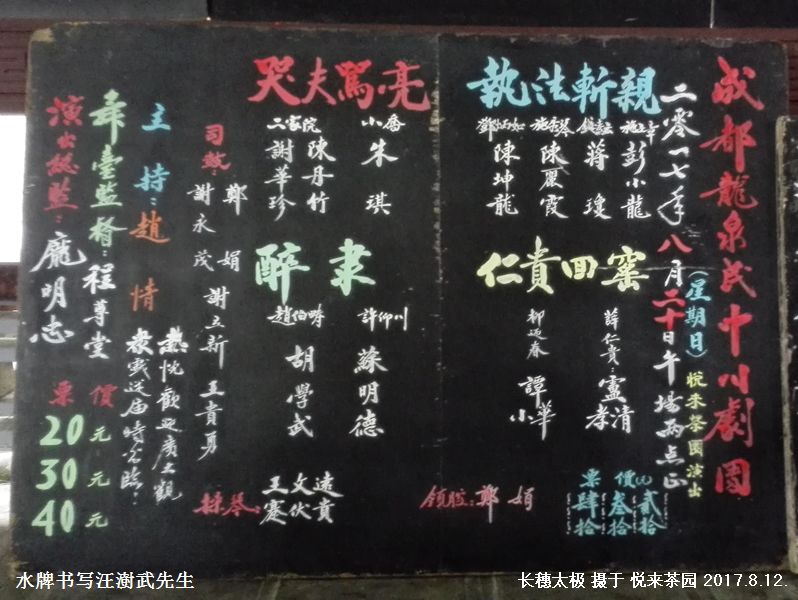 成都龍泉民中川劇團
二零一七年八月二十日午場兩点正
(星期日)
悅來茶園演出
執法斬親
彭小龍
蔣瓊
陳麗霞
鄧炳如
陳坤龍
仁貴回窰
薛仁貴:盧孝清
柳迎春
譚小華
票價(元)
貳拾
叁拾
肆拾
領腔:鄭娟
哭夫罵亮
小喬
朱琪
二家院
陳丹竹
謝華珍
醉隶
許仰川
蘇明德
趙伯疇
胡學武
王文遠
蹇伏貢
操琴:
司鼓:
鄭娟
謝永茂
謝立新
王貴勇
主持:趙情
熱忱歡迎廣大觀
衆戲迷届時光臨:
舞臺監督:程尊堂
演出總監:龐明志
票價
20元
30元
40元
水牌书写汪澍武先生
长穗太极 摄于 悦来茶园 2017.8.12.